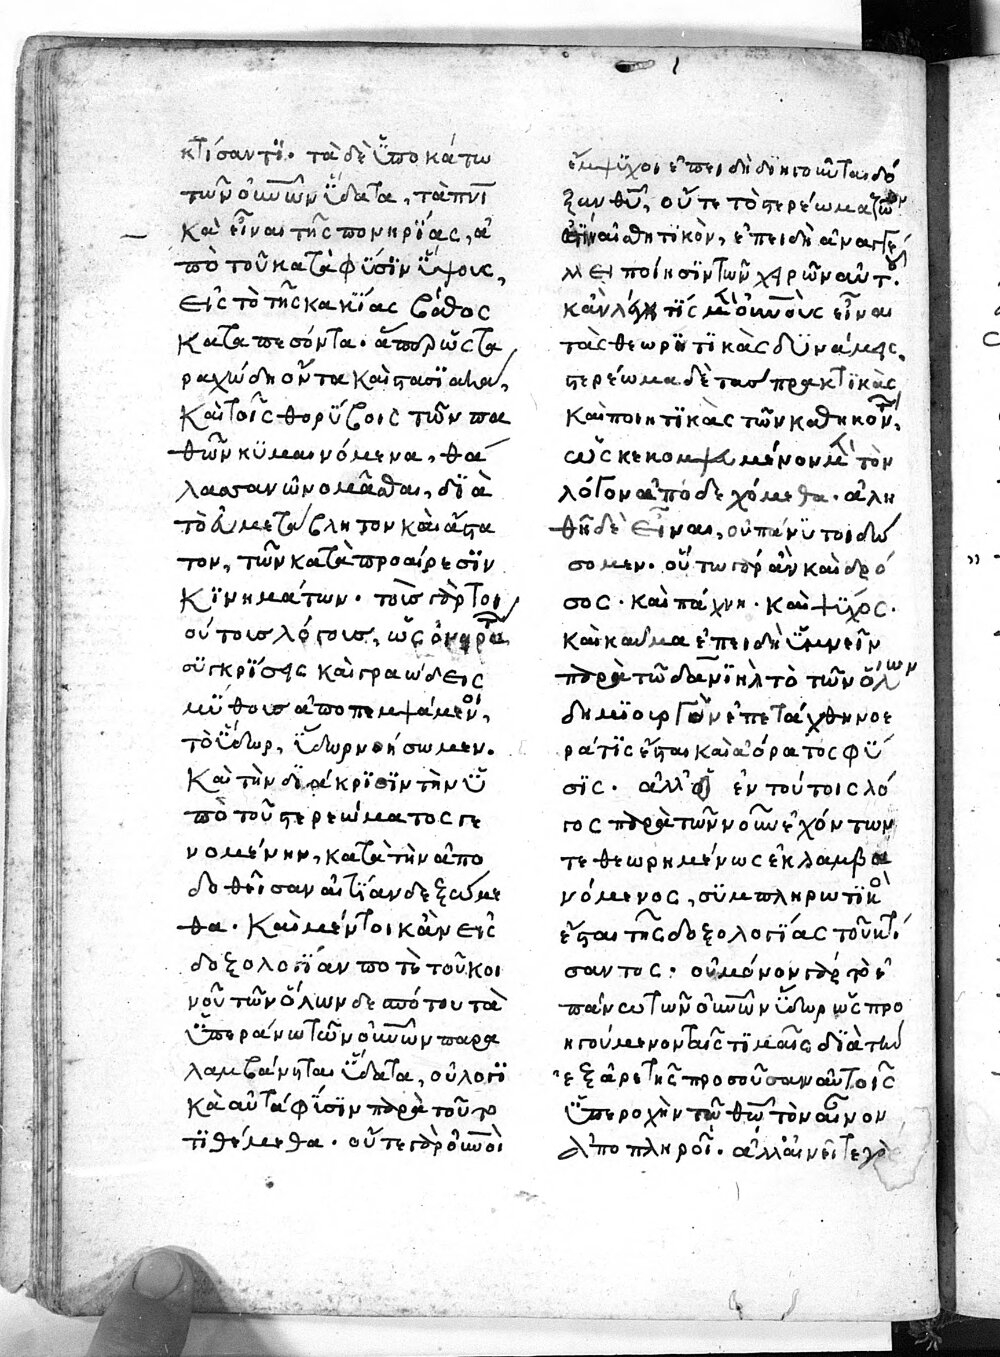 κτίσαντϊ. τὰ δὲ ὑποκάτω
τῶν οὐνῶν ὕδατα, τὰ πνϊ
κὰ εἶναι τῆς πονηρίας, ἀ
πὸ τοῦ κατὰ φύσϊν ὕψους,
εἰς τὸ τῆς κακίας βάθος
καταπεσόντα. ἅπερ ὡς τα
ραχώδη ὄντα καὶ στασϊακὰ,
καὶ τοῖς θορύβοις τῶν πα
θῶν κϋμαινόμενα, θά
λασσαν ὠνομᾶσθαι, δϊὰ
τὸ εὐμετάβλητον καὶ ἄστα
τον, τῶν κατὰ προαίρεσϊν
κϊνημάτων. τοὺς γὰρ τοι
ούτους λόγους, ὡς ὀνειρά
συγκρίσεις καὶ γραώδεις
μύθους ἀποπεμψάμενοι,
τὸ ὕδωρ, ὕδωρ νοήσωμεν.
καὶ τὴν δϊάκρϊσϊν τὴν ὑ
πὸ τοῦ στερεώματος γε
νομένην, κατὰ τὴν ἀπο
δοθεῖσαν αἰτίαν δεξώμε
θα. καὶ μέντοι κἂν εἰς
δοξολογίαν ποτὲ τοῦ κοι
νοῦ τῶν ὅλων δεσπότου τὰ
ὑπεράνω τῶν οὐνῶν παρα
λαμβάνηται ὕδατα, οὐ λογϊ
κὰ αὐτὰ φύσϊν παρὰ τοῦτο
τϊθέμεθα. οὔτε γὰρ οἱ οὐνοὶ
ἔμψϋχοι ἐπειδὴ δϊηγοῦνται δό
ξαν θῦ, οὔτε τὸ στερέωμα ζῶον
ἐστὶν αἰσθητικὸν, ἐπειδὴ ἀναγγέλ
λει ποίησϊν τῶν χειρῶν αὐτοῦ.
κἂν λέγη τϊς τοὺς μὲν οὐνοὺς εἶναι
τὰς θεωρητϊκὰς δϋνάμεις,
στερέωμα δὲ τὰς πρακτϊκὰς
καὶ ποιητϊκὰς τῶν καθηκόντων,
ὡς κεκομψευμένον μὲν τὸν
λόγον ἀποδεχόμεθα. ἀλη
θῆ δὲ εἶναι, οὐ πάνϋ τοι δώ
σομεν. οὕτω γὰρ ἂν καὶ δρό
σος. καὶ πάχνη. καὶ ψῦχος.
καὶ καῦμα ἐπειδὴ ὑμνεῖν
παρὰ τῶ δανϊὴλ τὸ τῶν ὅλων
δημϊουργὸν ἐπετάχθη νοε
ρά τϊς ἔσται καὶ ἀόρατος φύ
σϊς. ἀλλ' ὁ ἐν τούτοις λό
γος παρὰ τῶν νοῦν ἐχόντων
τεθεωρημένως ἐκλαμβα
νόμενος, σϋμπληρωτϊκὸς
ἔσται τῆς δοξολογίας τοῦ κτί
σαντος. οὐ μόνον γὰρ τὸ ἐ
πάνω τῶν οὐνῶν ὕδωρ ὡς προ
ηγούμενον ταῖς τϊμαῖς, δϊὰ τὴν
ἐξ ἀρετῆς προσοῦσαν αὐτοῖς
ὑπεροχὴν τῶ θῶ τὸν αἶνον
ἀποπληροῖ. ἀλλ' αἰνεῖτε γὰρ